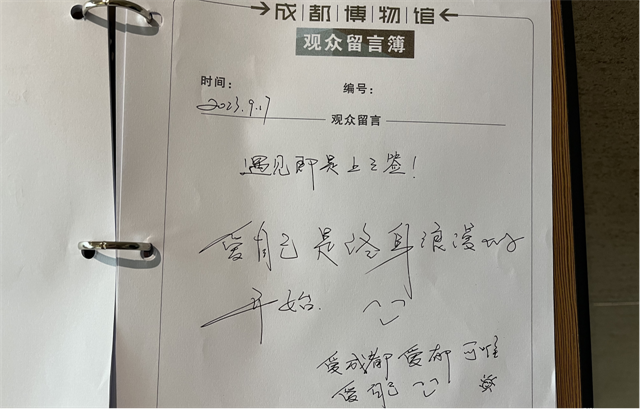 成都博物馆
观众留言簿
时间： 编号：
2023.9.17
观众留言
遇见即是上上签！
爱自己是终身浪漫的
开始.
爱成都 爱都
爱自己